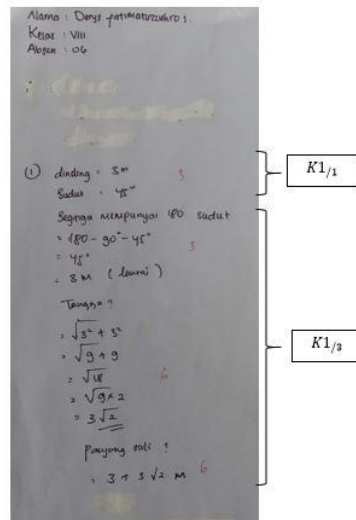 Nama : Denys patimatuzzuhro s.
Kelas : VIII
Absen : 06
① dinding = 3 m 3
Sudut = 45°
K1/1
Segitiga mempunyai 180 sudut
= 180 - 90° - 45° 3
= 45°
= 3 M ( lantai )
Tangga ?
= √3² + 3²
= √9 + 9
K1/3
= √18 6
= √9 x 2
= 3√2
panjang tali ?
= 3 + 3√2 M 6